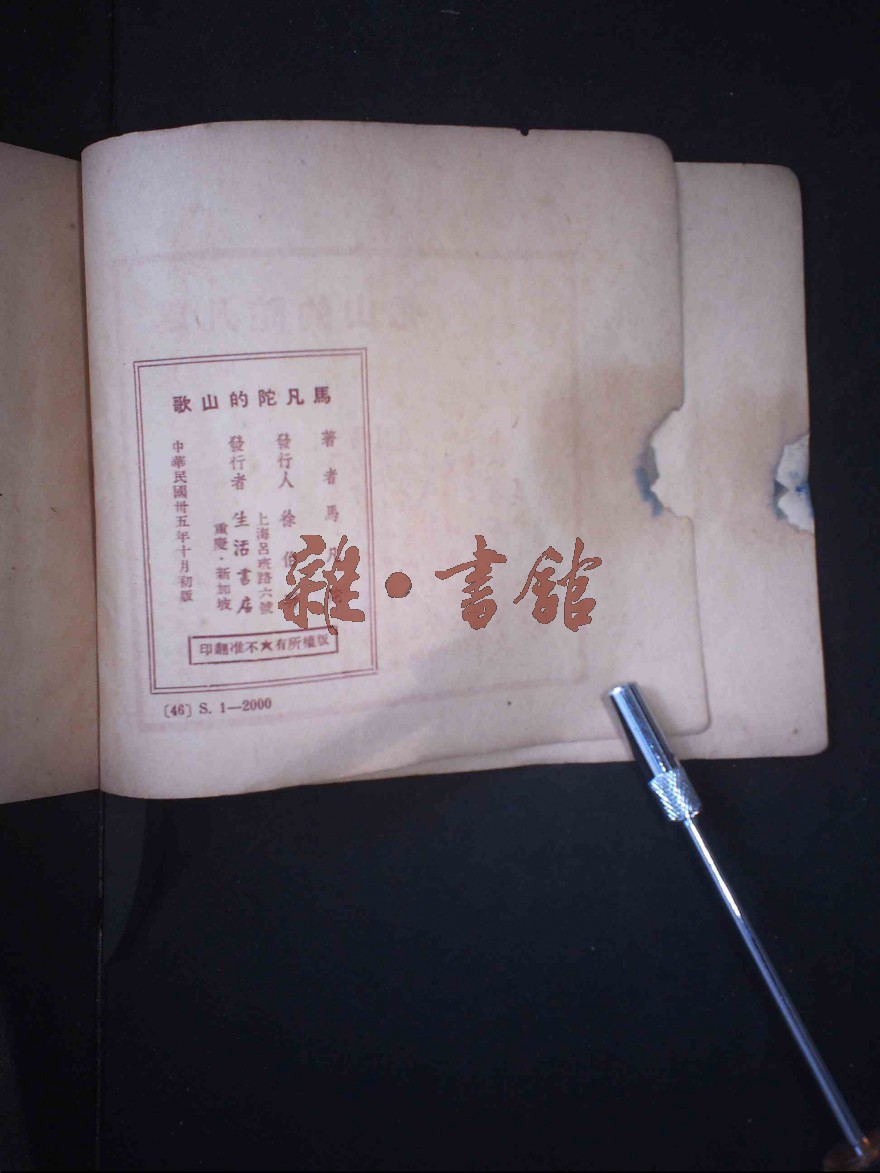 馬凡陀的山歌
著者 馬凡
發行人 徐伯
上海呂班路六號
發行者 生活書店
重慶·新加坡
中華民國卅五年十月初版
版權所有★不准翻印
〔46〕 S. 1—2000
雜·書館